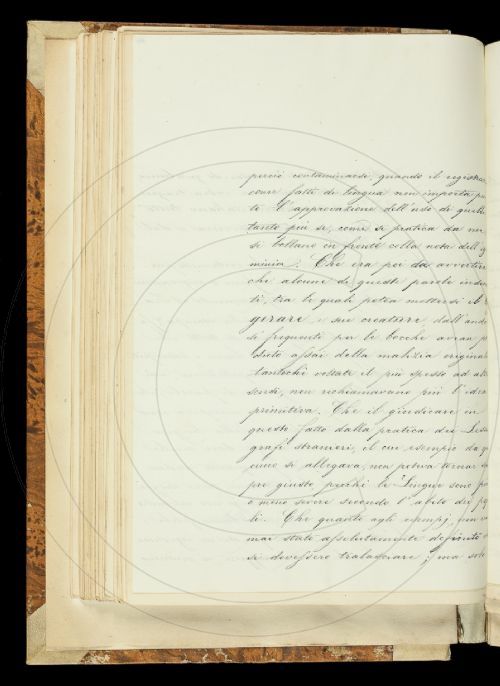 perciò contaminarsi, quando il registrar
come fatti di lingua non importa pun
to l'approvazione dell'uso di quelle
tanto più se, come si pratica da noi
si bollano in fronte colla nota dell'ig
minia. Che era poi da avvertire
che alcune di questi parole indecen
ti, tra le quale potea mettersi il
gerare, e sue creature dall'andar
sì frequenti per le bocche avean p
deposto assai della malizia original
tantochè voltate il più spesso ad altri
sensi, non richiamavano più l'idea
primitiva. Che il giudicare in
questo fatto dalla pratica dei Lessi
grafi stranieri, il cui esempio da
cuno si allegava, non poteva tornar sem
pre giusto perchè le lingue sono più
o meno severe secondo l'abito dei popo
li. Che quanto agli esempj, non era
mai stato assolutamente definito
si dovessero tralasciare; ma solo